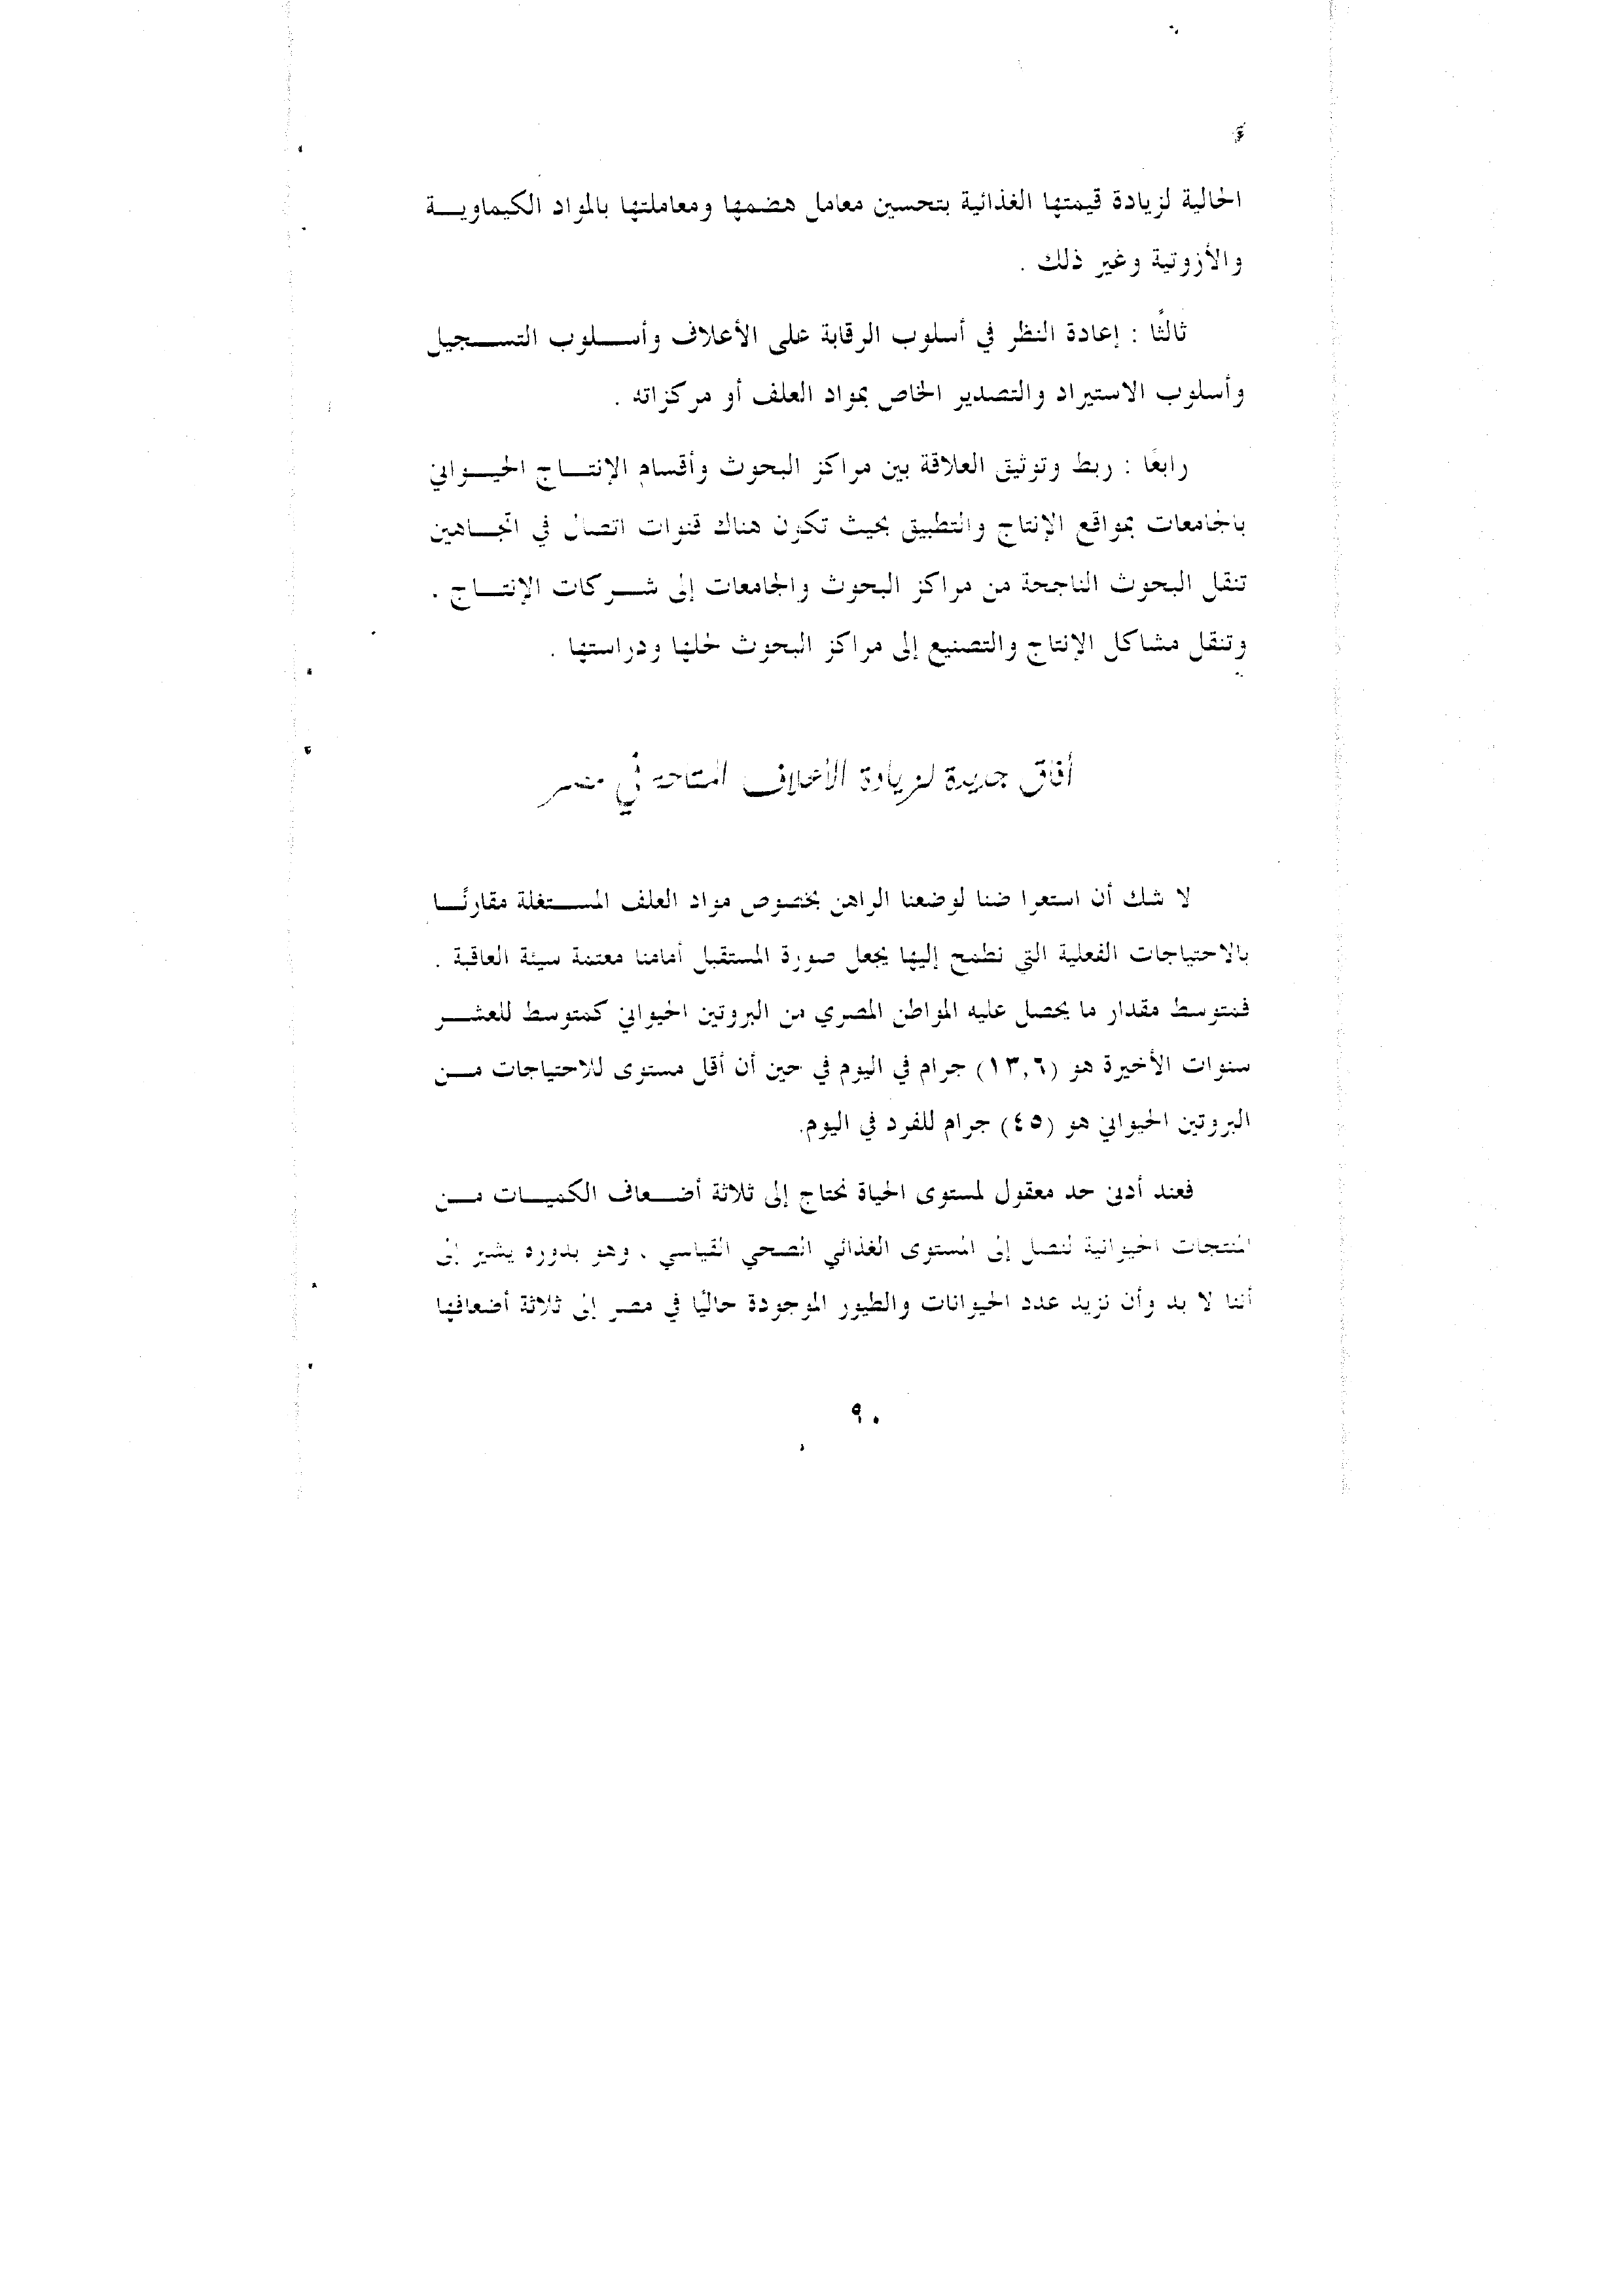 الحالية لزيادة قيمتها الغذائية بتحسين معامل هضمها ومعاملتها بالمواد الكيماوية
والأزوتية وغير ذلك .
ثالثًا : إعادة النظر في أسلوب الرقابة على الأعلاف وأسلوب التسجيل
وأسلوب الاستيراد والتصدير الخاص بمواد العلف أو مركزاته .
رابعًا : ربط وتوثيق العلاقة بين مراكز البحوث وأقسام الإنتاج الحيواني
بالجامعات بمواقع الإنتاج والتطبيق بحيث تكون هناك قنوات اتصال في اتجاهين
تنقل البحوث الناجحة من مراكز البحوث والجامعات إلى شركات الإنتاج .
وتنقل مشاكل الإنتاج والتصنيع إلى مراكز البحوث لحلها ودراستها .
أفاق جديدة لزيادة الأعلاف المتاحة في مصر
لا شك أن استعرا ضنا لوضعنا الراهن بخصوص مواد العلف المستغلة مقارنًا
بالاحتياجات الفعلية التي نطمح إليها يجعل صورة المستقبل أمامنا معتمة سيئة العاقبة .
فمتوسط مقدار ما يحصل عليه المواطن المصري من البروتين الحيواني كمتوسط للعشر
سنوات الأخيرة هو (١٣,٦) جرام في اليوم في حين أن أقل مستوى للاحتياجات من
البروتين الحيواني هو (٤٥) جرام للفرد في اليوم.
فعند أدنى حد معقول لمستوى الحياة نحتاج إلى ثلاثة أضعاف الكميات من
المنتجات الحيوانية لنصل إلى المستوى الغذائي الصحي القياسي . وهو بدوره يشير إلى
أننا لا بد وأن نزيد عدد الحيوانات والطيور الموجودة حاليًا في مصر إلى ثلاثة أضعافها
٩٠